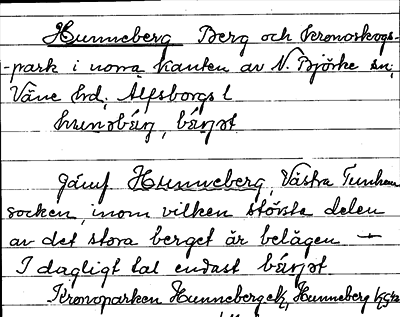 Hunneberg Berg och kronoskogs-
-park i norra kanten av N. Björke sn,
Väne hd, Älfsborgs l
hunəbæ̀rj, bǽrjət
Jämf Hunneberg, Västra Tunhem
socken, inom vilken största delen
av det stora berget är belägen —
I dagligt tal endast bǽrjət
Kronoparken Hunneberg ek, Hunneberg